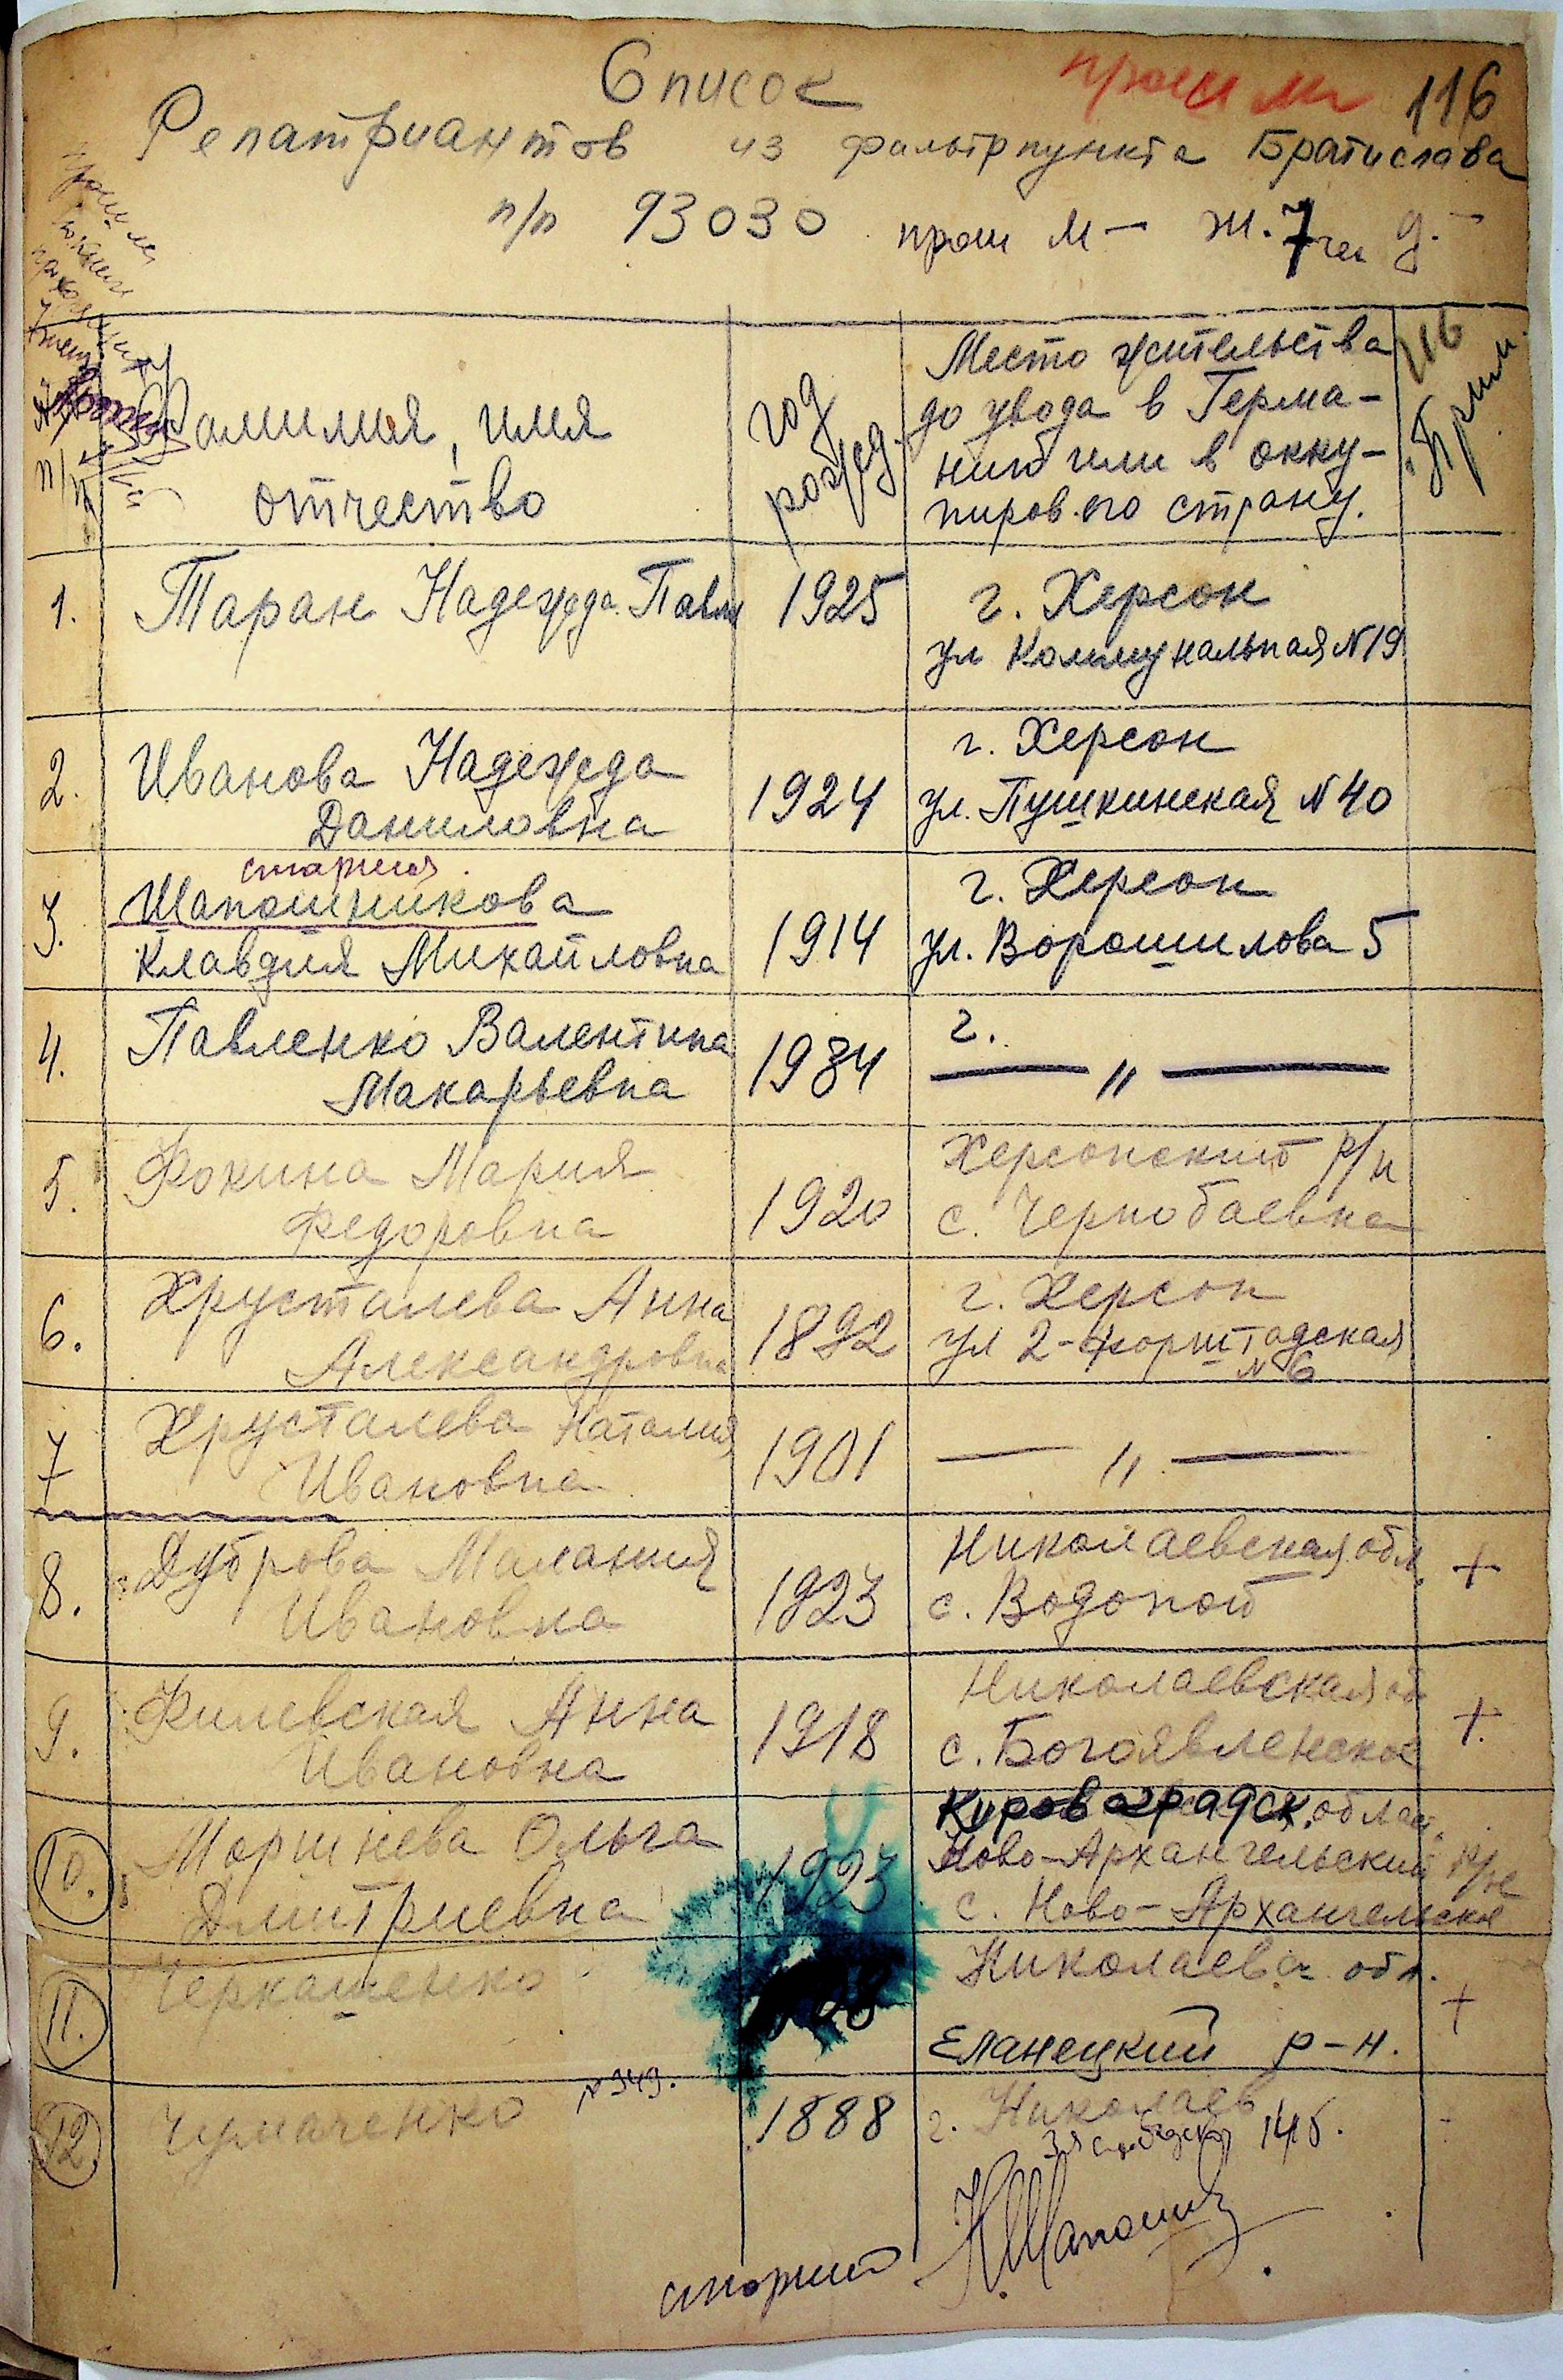 Список
116
Репатриантов из фильтрпункта Братислава
п/п 93030 прош М — Ж. 7 чел Д. —
п/п
Фамилия, имя
отчество
год
рожд.
Место жительства
до увода в Герма-
нию или в окку-
пиров. ею страну.
116
Прим.
1. Таран Надежда Павл 1925 г. Херсон
ул Коммунальная N19
2. Иванова Надежда
Даниловна 1924 г. Херсон
ул. Пушкинская N 40
старшая
3. Шапошникова
Клавдия Михайловна 1914 г. Херсон
ул. Ворошилова 5
4. Павленко Валентина
Макарьевна г.
— " —
5. Фокина Мария
Федоровна 1920 Херсонский р/н
с. Чернобаевка
6. Хрусталева Анна
Александровна 1892 г. Херсон
ул 2-Форштадская
N 6
7 Хрусталева Наталия
Ивановна 1901 — " —
8. Дуброва Малания
Ивановна 1923 Николаевская обл.
с. Водопой +
9. Филевская Анна
Ивановна 1918 Николаевская об
с. Богоявленское +
10. Моршнева Ольга
Дмитриевна 1923 Кировоградск. област.
Ново-Архангельский р/не
с. Ново-Архангельское
11. Черкашенко Николаевск обл.
Еланецкий р-н. +
12. Чумаченко N 349. 1888 г. Николаев
3я Слободская 145.
старший Шапошн